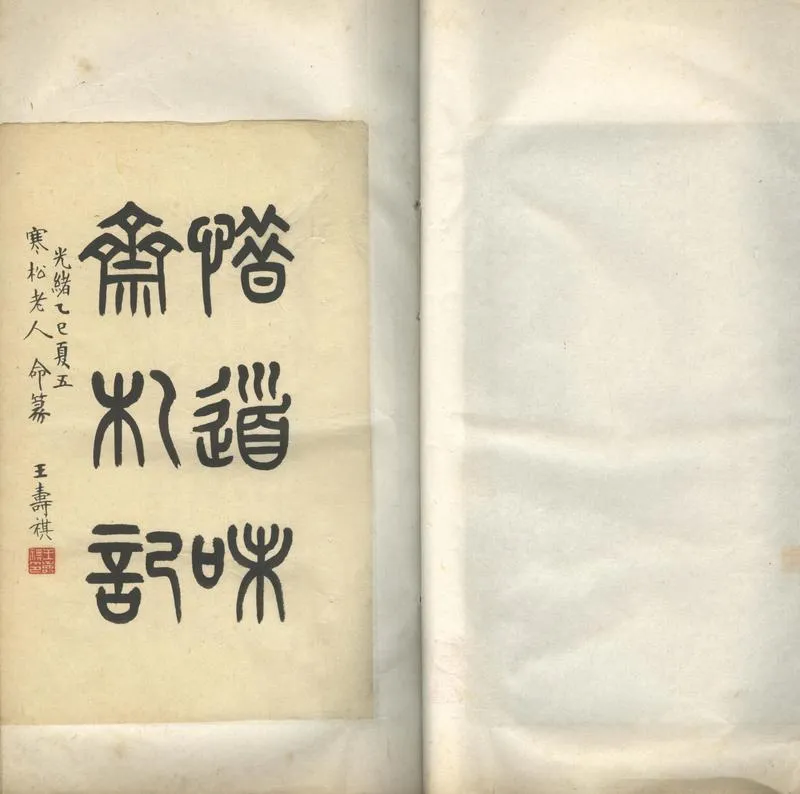 惜道味
齋札記
光緒乙巳夏五
寒松老人命篆 王壽祺